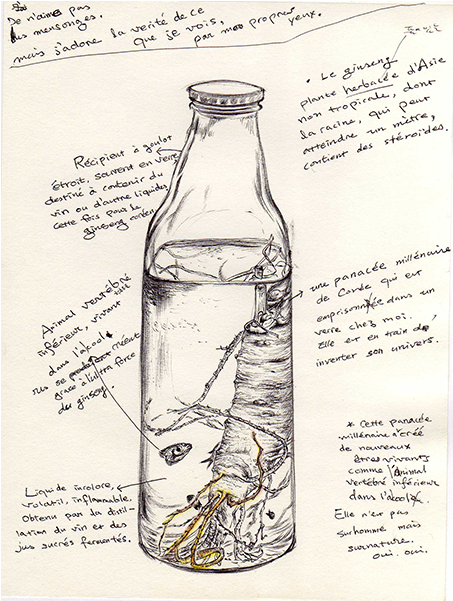 Je n'aime pas
les mensonges.
mais j'adore la verité de ce
que je vois,
par mes propres
yeux.
• Le ginseng
plante herbacée d'Asie
non tropicale, dont
la racine, qui peut
atteindre un mètre,
contient des stéroïdes.
Récipient à goulot
étroit, souvent en verre
destiné à contenir du
vin ou d'autres liquides
cette fois pour le
ginseng coréen
une panacée millénaire
de Corée qui est
emprisonnée dans un
verre chez moi.
Elle est en train d'
inventer son univers.
Animal vertébré
inférieur, vivant
dans l'alcool
ils se créent
grâce à l'ultra force
du ginseng.
* Cette panacée
millénaire a créé
de nouveaux
êtres vivants
comme l'Animal
vertébré inférieur
dans l'alcool.
Elle n'est pas
surhomme mais
surnature.
oui. oui.
Liquide incolore,
volatil, inflammable,
Obtenu par la distil-
lation du vin et des
jus sucrés fermentés.